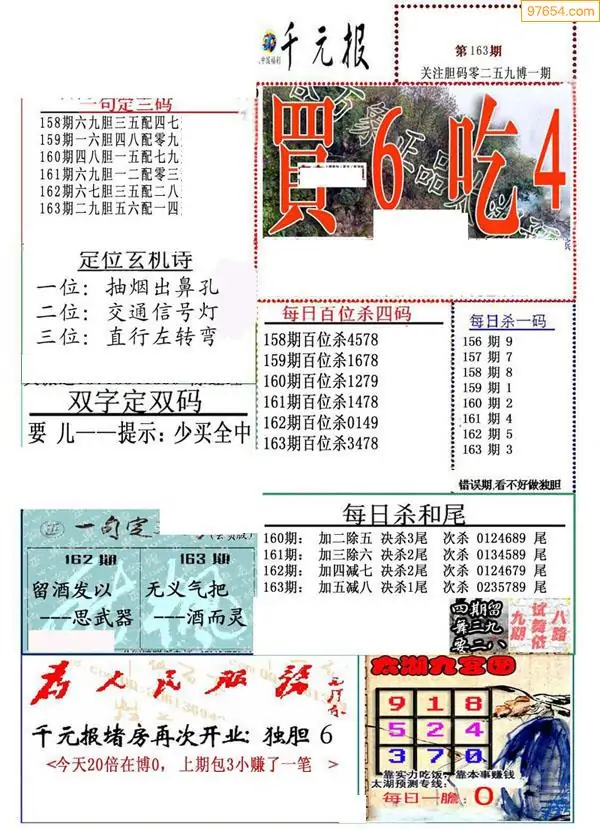 97654.com
千元报
中国福利
第163期
关注胆码零二五九博一期
一句定三码
158期六九胆三五配四七
159期一六胆四八配零九
160期四八胆一五配七九
161期六九胆一二配零三
162期六七胆三五配二八
163期二九胆五六配一四
買6吃4
定位玄机诗
一位：抽烟出鼻孔
二位：交通信号灯
三位：直行左转弯
每日百位杀四码
158期百位杀4578
159期百位杀1678
160期百位杀1279
161期百位杀1478
162期百位杀0149
163期百位杀3478
每日杀一码
156 期 9
157 期 7
158 期 8
159 期 1
160 期 2
161 期 4
162 期 5
163 期 3
错误期,看不好做独胆
双字定双码
要 儿——提示：少买全中
每日杀和尾
160期： 加二除五 决杀3尾 次杀 0124689 尾
161期： 加三除六 决杀2尾 次杀 0134589 尾
162期： 加四减七 决杀2尾 次杀 0124679 尾
163期： 加五减八 决杀1尾 次杀 0235789 尾
一句定
162 期
留酒发以
---思武器
163 期
无义气把
---酒而灵
四期留
舞三九
要二八
九期
试舞依
八路
为人民服务
千元报堵房再次开业: 独胆 6
<今天20倍在博0, 上期包3小赚了一笔 >
太湖九宫图
9 1 8
5 2 4
3 7 0
靠实力吃饭,靠本事赚钱
太湖预测专线:
每日一胆: 0